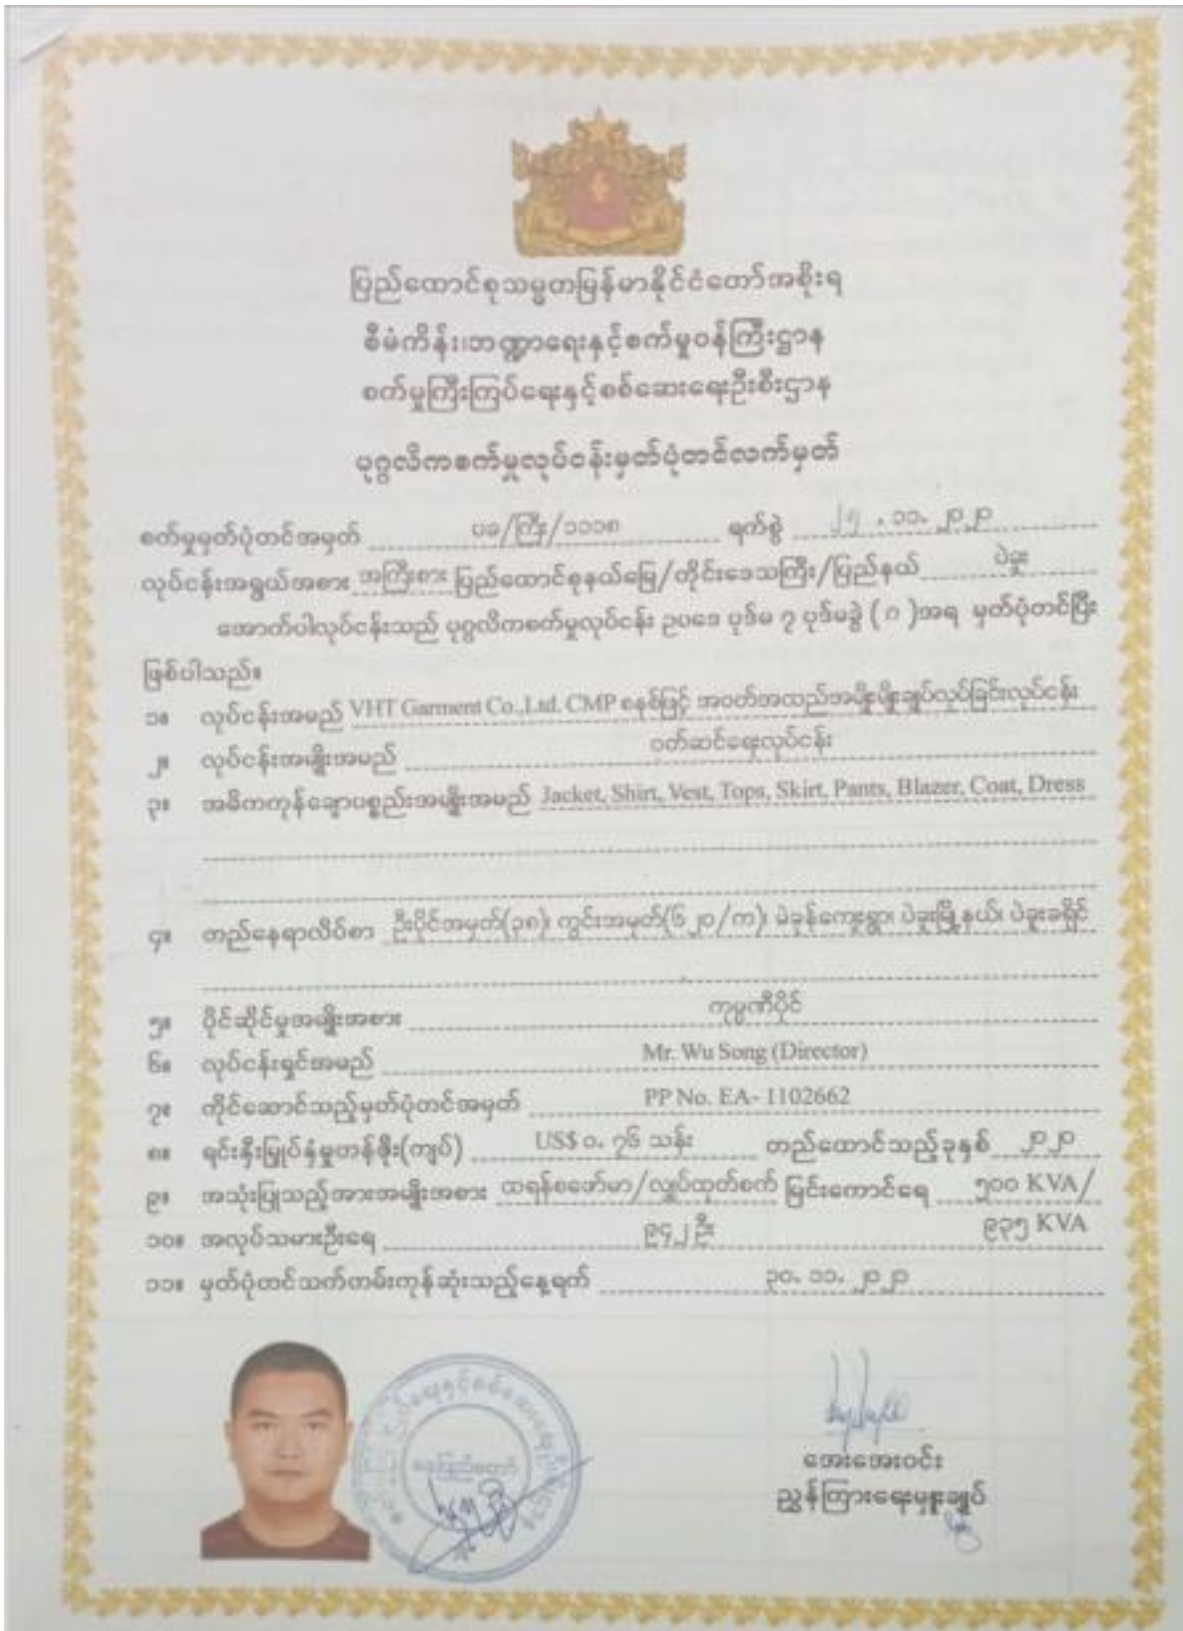 ပြည်ထောင်စုသမ္မတမြန်မာနိုင်ငံတော်အစိုးရ
စီမံကိန်း၊ဘဏ္ဍာရေးနှင့်စက်မှုဝန်ကြီးဌာန
စက်မှုကြီးကြပ်ရေးနှင့်စစ်ဆေးရေးဦးစီးဌာန
ပုဂ္ဂလိကစက်မှုလုပ်ငန်းမှတ်ပုံတင်လက်မှတ်
စက်မှုမှတ်ပုံတင်အမှတ် ပခ/ကြီး/၁၁၁၈ ရက်စွဲ ၂၅.၁၁.၂၀၂၀
လုပ်ငန်းအရွယ်အစား အကြီးစား ပြည်ထောင်စုနယ်မြေ/တိုင်းဒေသကြီး/ပြည်နယ် ပဲခူး
အောက်ပါလုပ်ငန်းသည် ပုဂ္ဂလိကစက်မှုလုပ်ငန်း ဥပဒေ ပုဒ်မ ၇ ပုဒ်မခွဲ (ဂ)အရ မှတ်ပုံတင်ပြီး
ဖြစ်ပါသည်။
၁။ လုပ်ငန်းအမည် VHT Garment Co.,Ltd. CMP စနစ်ဖြင့် အဝတ်အထည်အမျိုးမျိုးချုပ်လုပ်ခြင်းလုပ်ငန်း
၂။ လုပ်ငန်းအမျိုးအမည် ဝတ်ဆင်ရေးလုပ်ငန်း
၃။ အဓိကကုန်ချောပစ္စည်းအမျိုးအမည် Jacket, Shirt, Vest, Tops, Skirt, Pants, Blazer, Coat, Dress
၄။ တည်နေရာလိပ်စာ ဦးပိုင်အမှတ်(၃၈)၊ ကွင်းအမှတ်(၆၂၀/က)၊ မဲခုန်ကျေးရွာ၊ ပဲခူးမြို့နယ်၊ ပဲခူးခရိုင်
၅။ ပိုင်ဆိုင်မှုအမျိုးအစား ကုမ္ပဏီပိုင်
၆။ လုပ်ငန်းရှင်အမည် Mr. Wu Song (Director)
၇။ ကိုင်ဆောင်သည့်မှတ်ပုံတင်အမှတ် PP No. EA- 1102662
၈။ ရင်းနှီးမြှုပ်နှံမှုတန်ဖိုး(ကျပ်) US$ ၀.၇၆ သန်း တည်ထောင်သည့်ခုနှစ် ၂၀၂၀
၉။ အသုံးပြုသည့်အားအမျိုးအစား ထရန်စဖော်မာ/လျှပ်ထုတ်စက် မြင်းကောင်ရေ ၅၀၀ KVA/
၁၀။ အလုပ်သမားဦးရေ ၉၄၂ ဦး ၉၃၅ KVA
၁၁။ မှတ်ပုံတင်သက်တမ်းကုန်ဆုံးသည့်နေ့ရက် ၃၀.၁၁.၂၀၂၁
နေပြည်တော်
အေးအေးဝင်း
ညွှန်ကြားရေးမှူးချုပ်